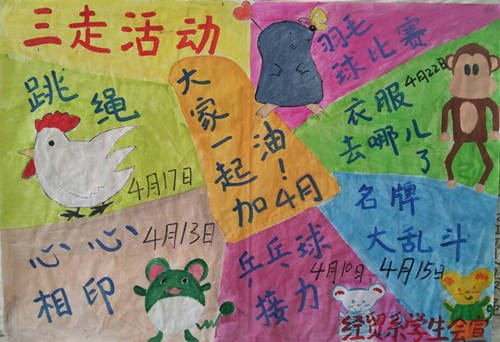 三走活动
跳绳
4月17日
大家一起加油！
4月
羽毛
球比赛
4月22日
衣服
去哪儿
了
心心
相印
4月13日
乒乓球
接力
4月10日
名牌
大乱斗
4月15日
经贸系学生会宣